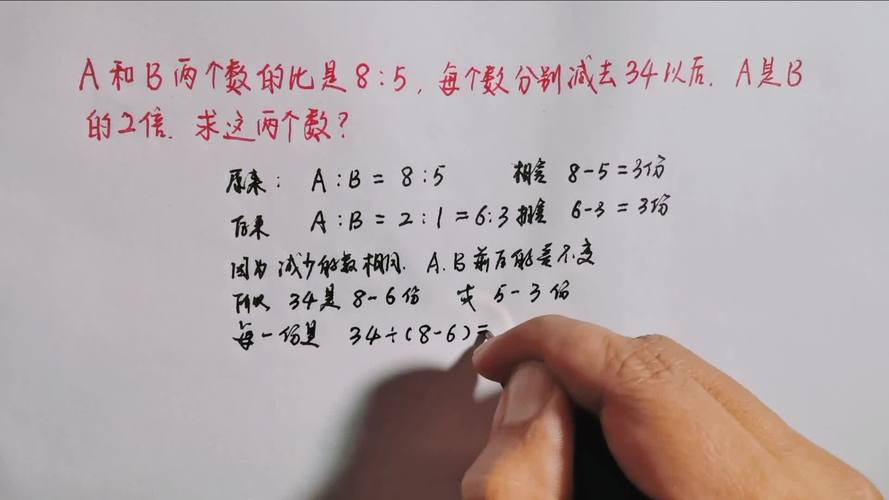 A和B两个数的比是8:5,每个数分别减去34以后.A是B
的2倍.求这两个数?
原来: A:B=8:5 相差 8-5=3份
后来 A:B=2:1=6:3 相差 6-3=3份
因为减少的数相同.A.B前后的差不变
所以 34是8-6份 或 5-3份
每一份是 34÷(8-6)=